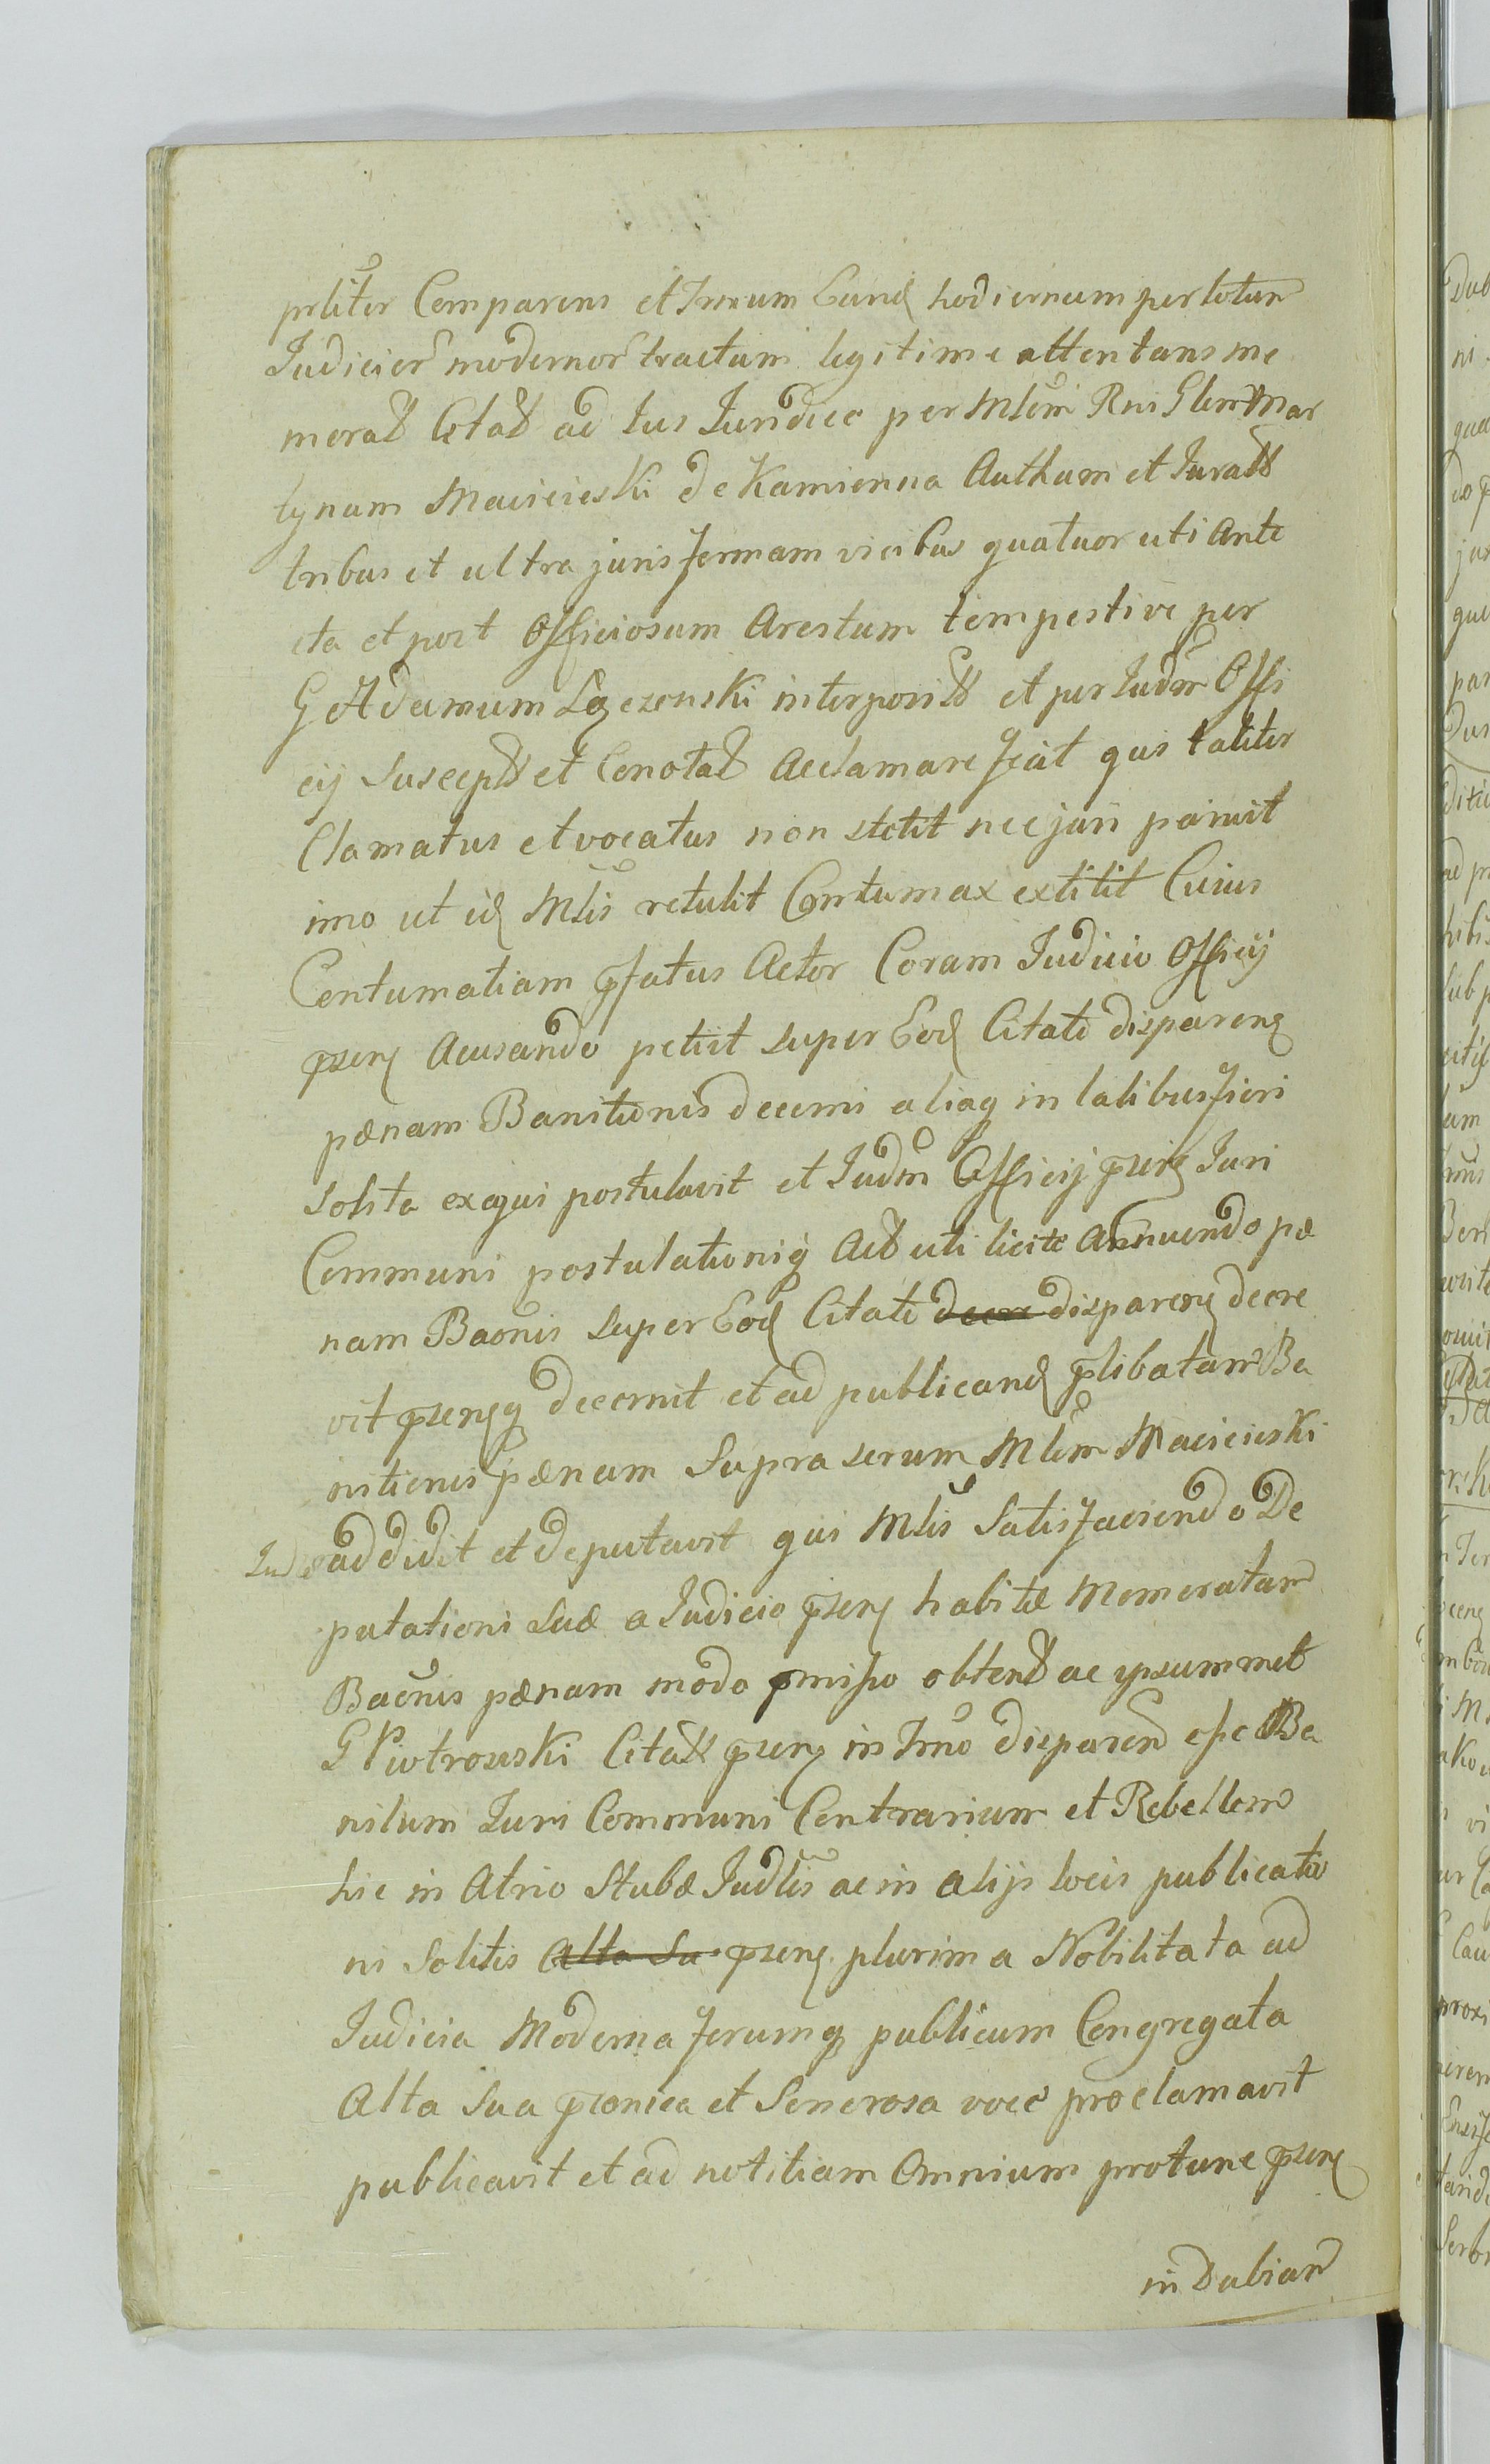 prliter Comparens et Trnum Eund hodiernum per totum
Judicior modernor tractum legitime attentans me
morat Citat ad Jus Juridice per Mlem Rni Glem Mar
tynum Macieieski de Kamienna Authum et Juratt
tribus et ultra juris formam vicibus quatuor uti Ante
ita et post Officiosum Arestum tempestive per
G Adamum Lęczenski interposit et per Judm Offi
cij Suscept et Conotat Acclamare fecit qui taliter
Clamatus et vocatus non stetit nec juri paruit
imo ut id Mlis retulit Contumax extitit Cuius
Contumatiam pfatus Actor Coram Judicio Officij
pseng Acusando petiit super Eod Citato dispareng
pœnam Banitionis decerni aliaq in talibus fieri
Solita exequi postulavit et Judm Officij pseng Juri
Communi postulationiq Act uti licite Annuendo pœ
nam Baonis super Eod Citato decre dispareng decre
vit psengq decernit et ad publicand plibatam Ba
nitionis pœnam Supra serum Mlem Macieieski
Jud addidit et deputavit qui Mlis Satisfaciendo De
putationi Suæ a Judicio pseng habitæ Memoratam
Baonis pœnam modo pmisso obtent ac ipsummet
G Piotrowski Citatt pseng in Trno disparen esse Ba
nitum Juri Communi Contrarium et Rebellem
hic in Atrio Stubæ Judlis ac in alijs locis publicatio
ni Solitis Alta Su pseng plurima Nobilitata ad
Judicia Moderna forumq publicum Congregata
Alta Sua pconica et Senerosa voce proclamavit
publicavit et ad notitiam Omnium protunc pseng
indubiam